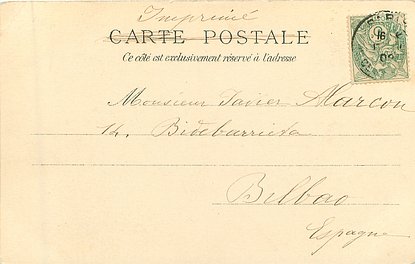 Imprimé
CARTE POSTALE
Ce côté est exclusivement réservé à l'adresse
Monsieur Javier Marcon
14, Bidebarrieta
Bilbao
Espagne